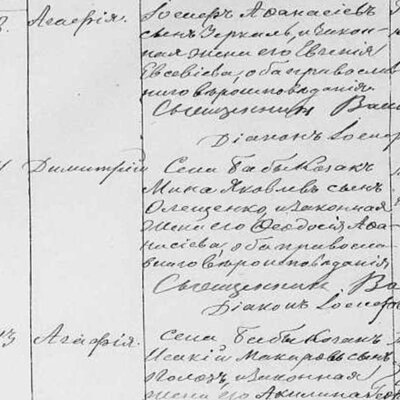 Агафія.
Іосифъ Аѳанасіевъ
сынъ Зеркаль, и закон-
ная жена его Евгенія
Евсевіева, оба православ-
наго вѣроисповѣданія.
Священникъ
Діаконъ
Димитрій
Села Бабы Козакъ
Мина Яковлевъ сынъ
Олещенко, и законная
жена его Ѳеодосія Аѳа-
насіева, оба правосла-
внаго вѣроисповѣданія
Священникъ
Діаконъ
13 Агафія.
Села Бабы Козакъ
Исакій Макаровъ сынъ
и законная
жена его Акилина